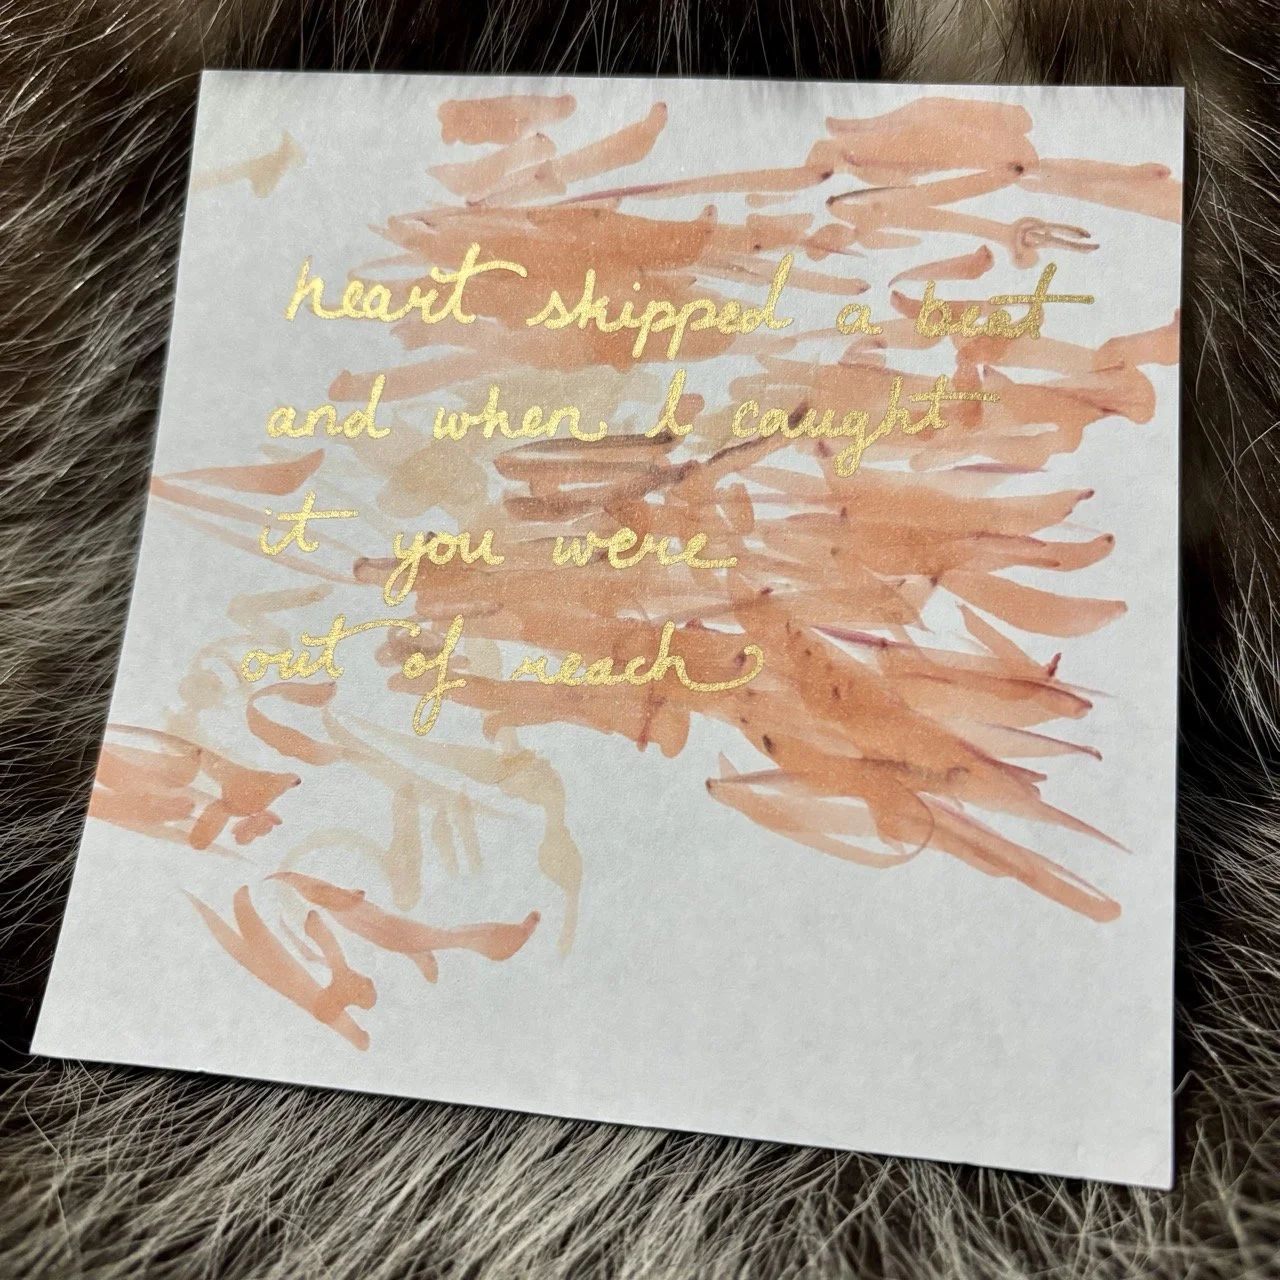 heart skipped a beat
and when I caught
it you were
out of reach